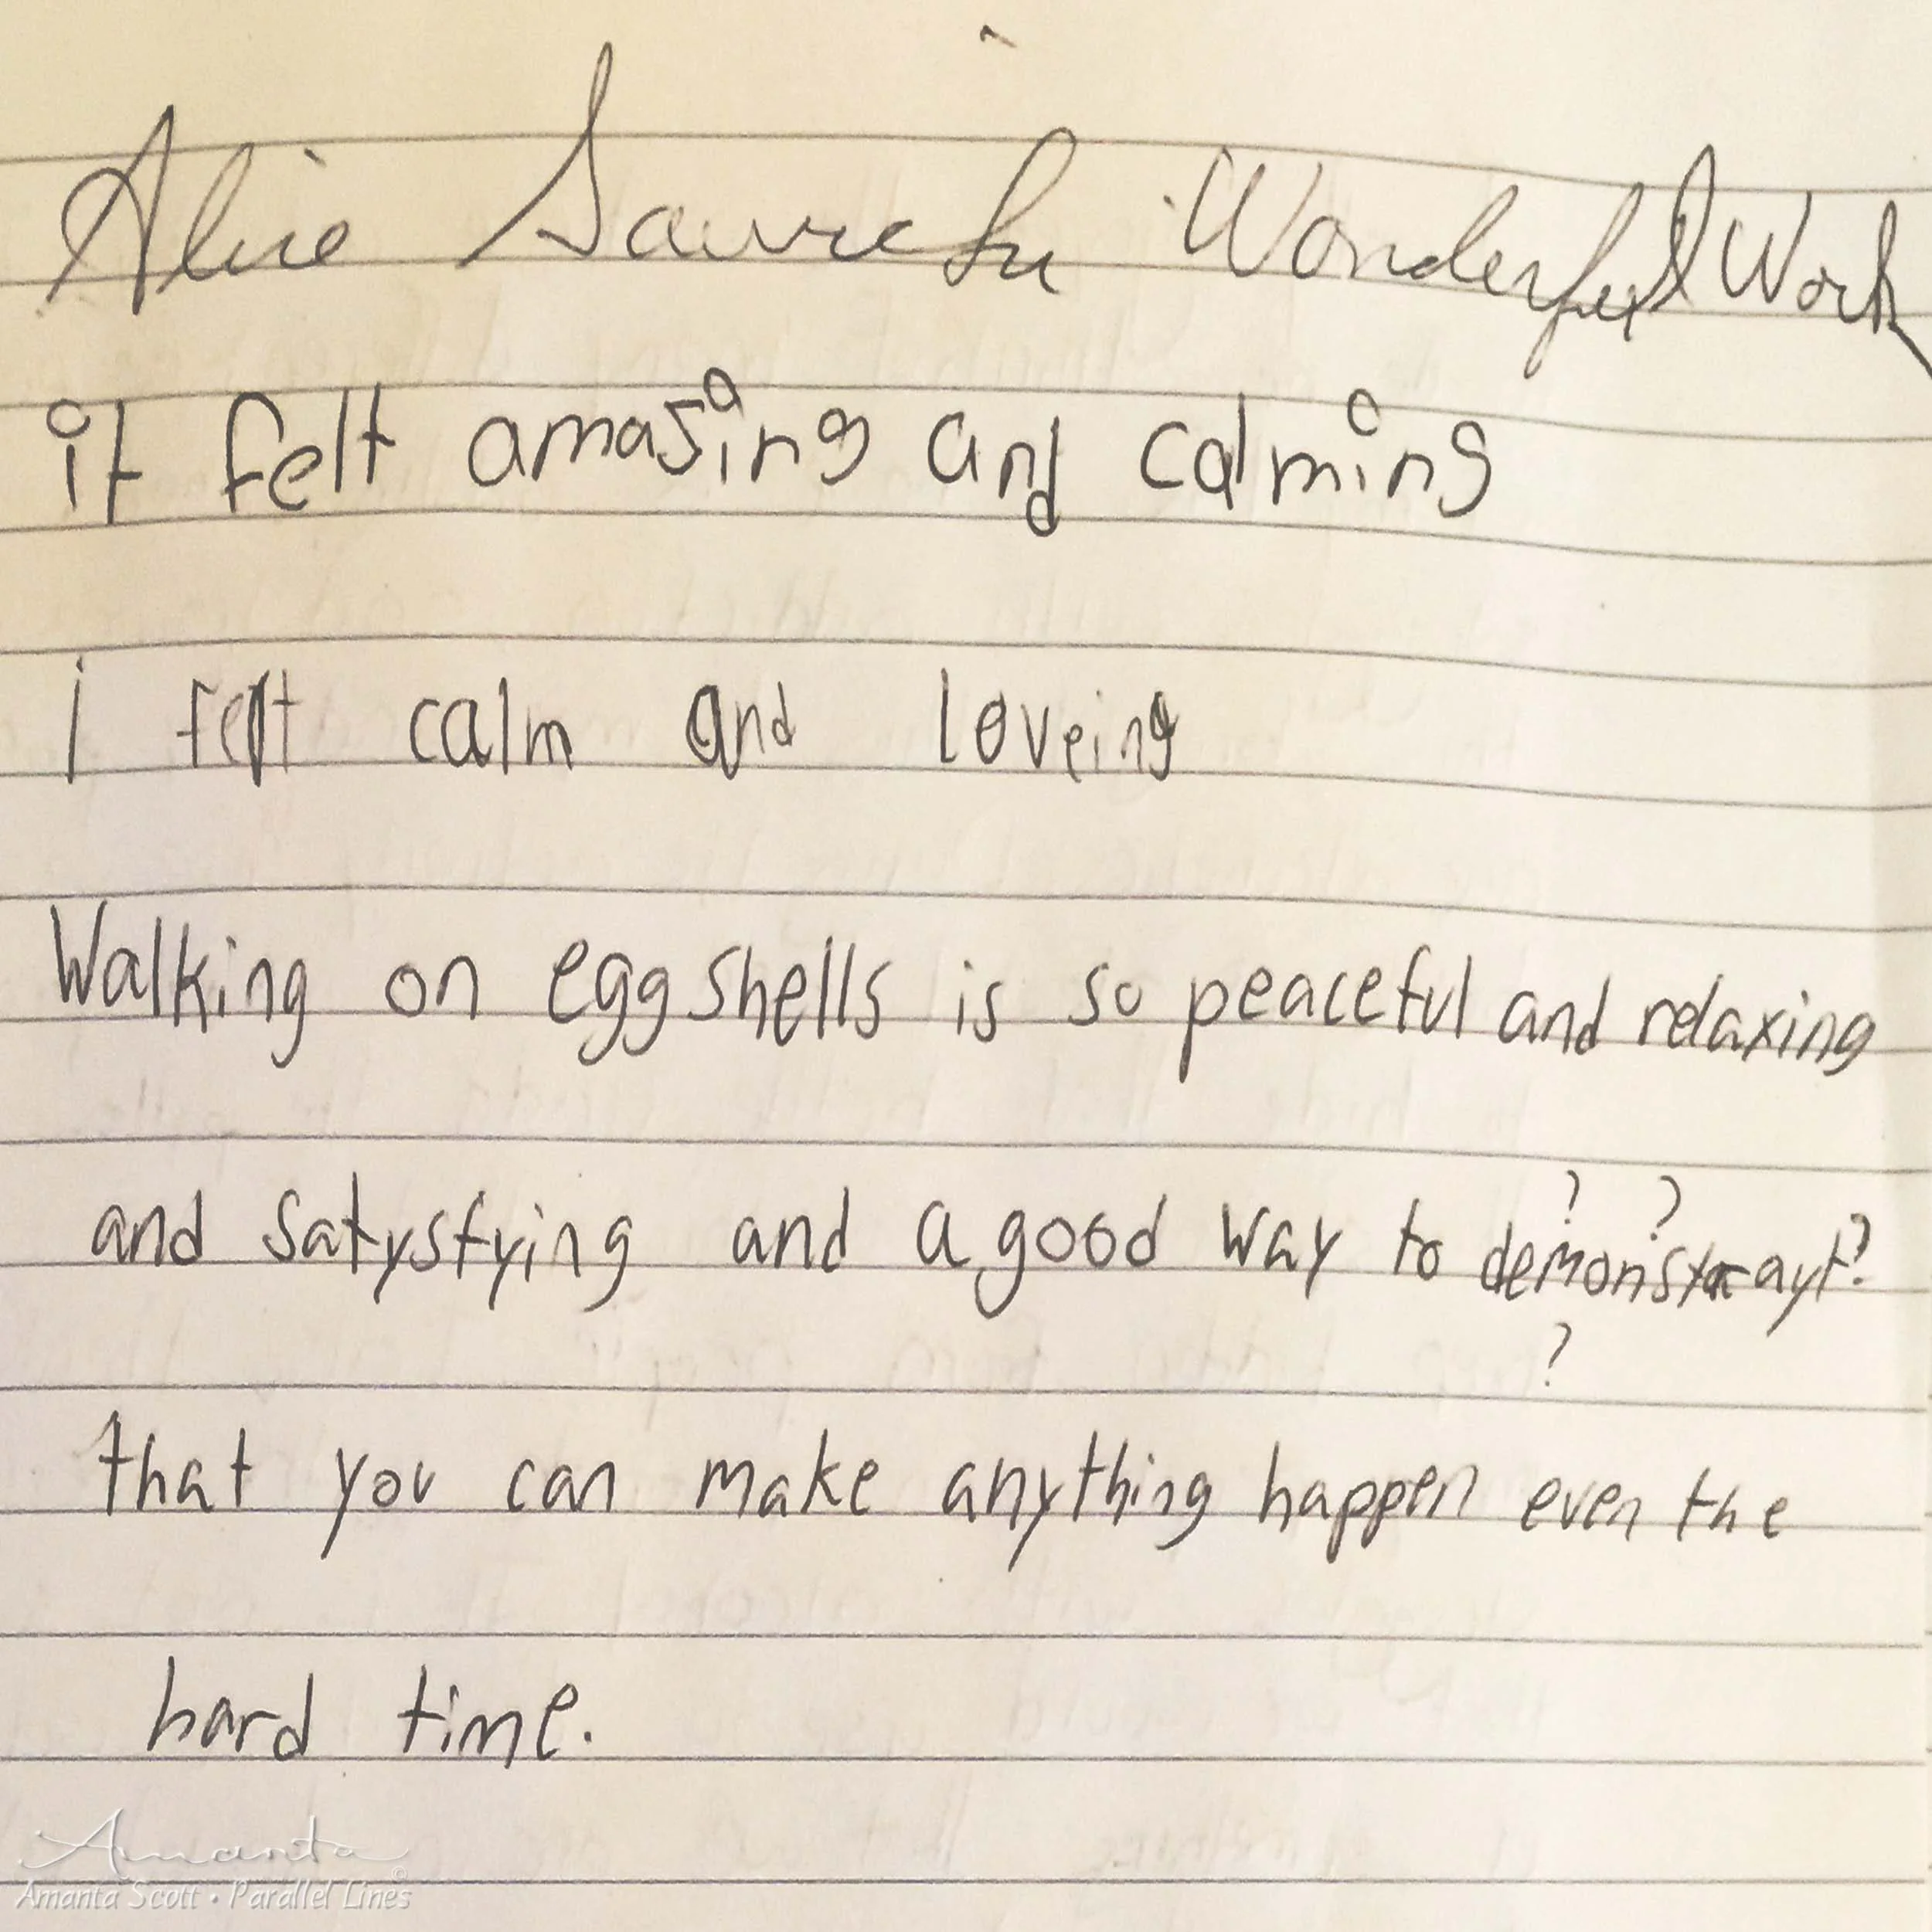 Alice Wonderful Work
it felt amasing and calming
i felt calm and loveing
Walking on egg shells is so peaceful and relaxing
and satysfying and a good way to demonstrayt?
that you can make anything happen even the
hard time.
Amanta
Amanta Scott • Parallel Lines ©